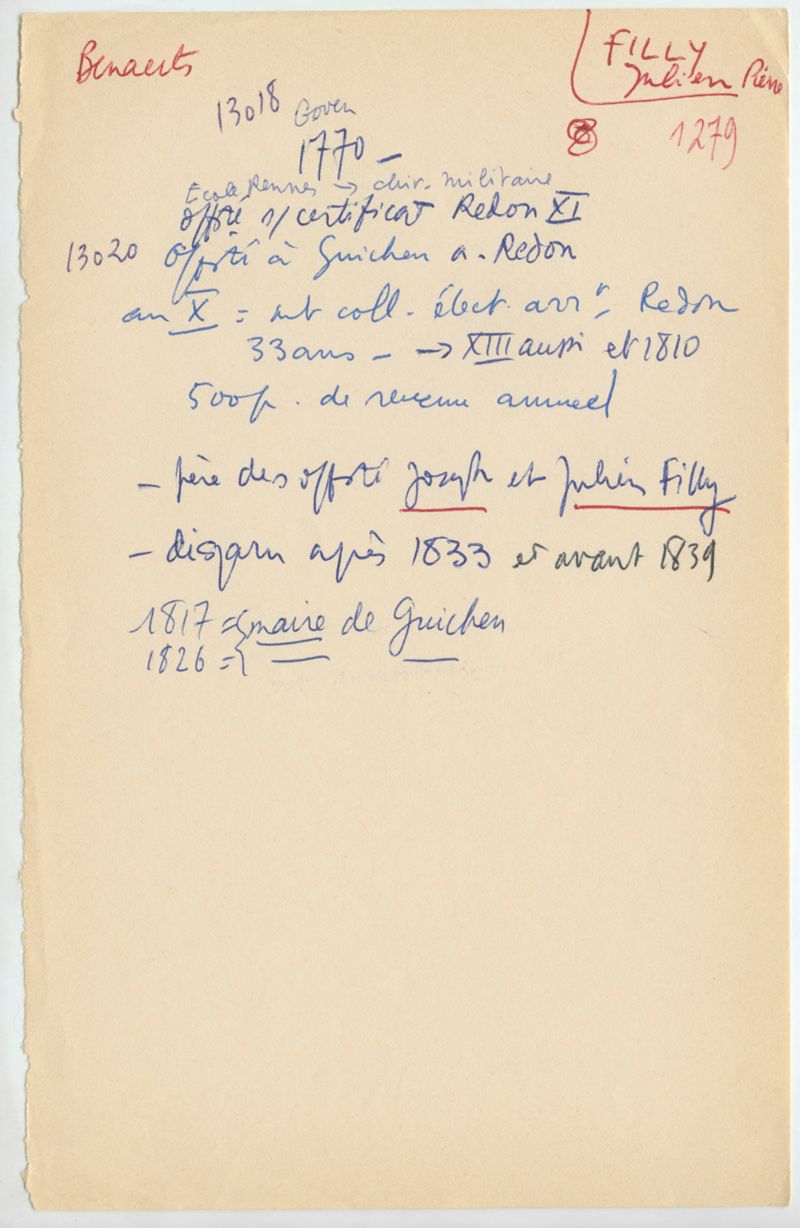 Benaerts
FILLY
Julien Pierre
8 1279
13018 Goven
1770 -
Ecole Rennes → chir. militaire
offté s/ certificat Redon XI
13020 Offsté à Guichen a. Redon
an X = mt coll. élect. arrt Redon
33 ans - → XIII aussi et 1810
500f. de revenu annuel
- père des offsté Joseph et Julien Filly
- disparu après 1833 et avant 1839
1817 = { maire de Guichen
1826 = {